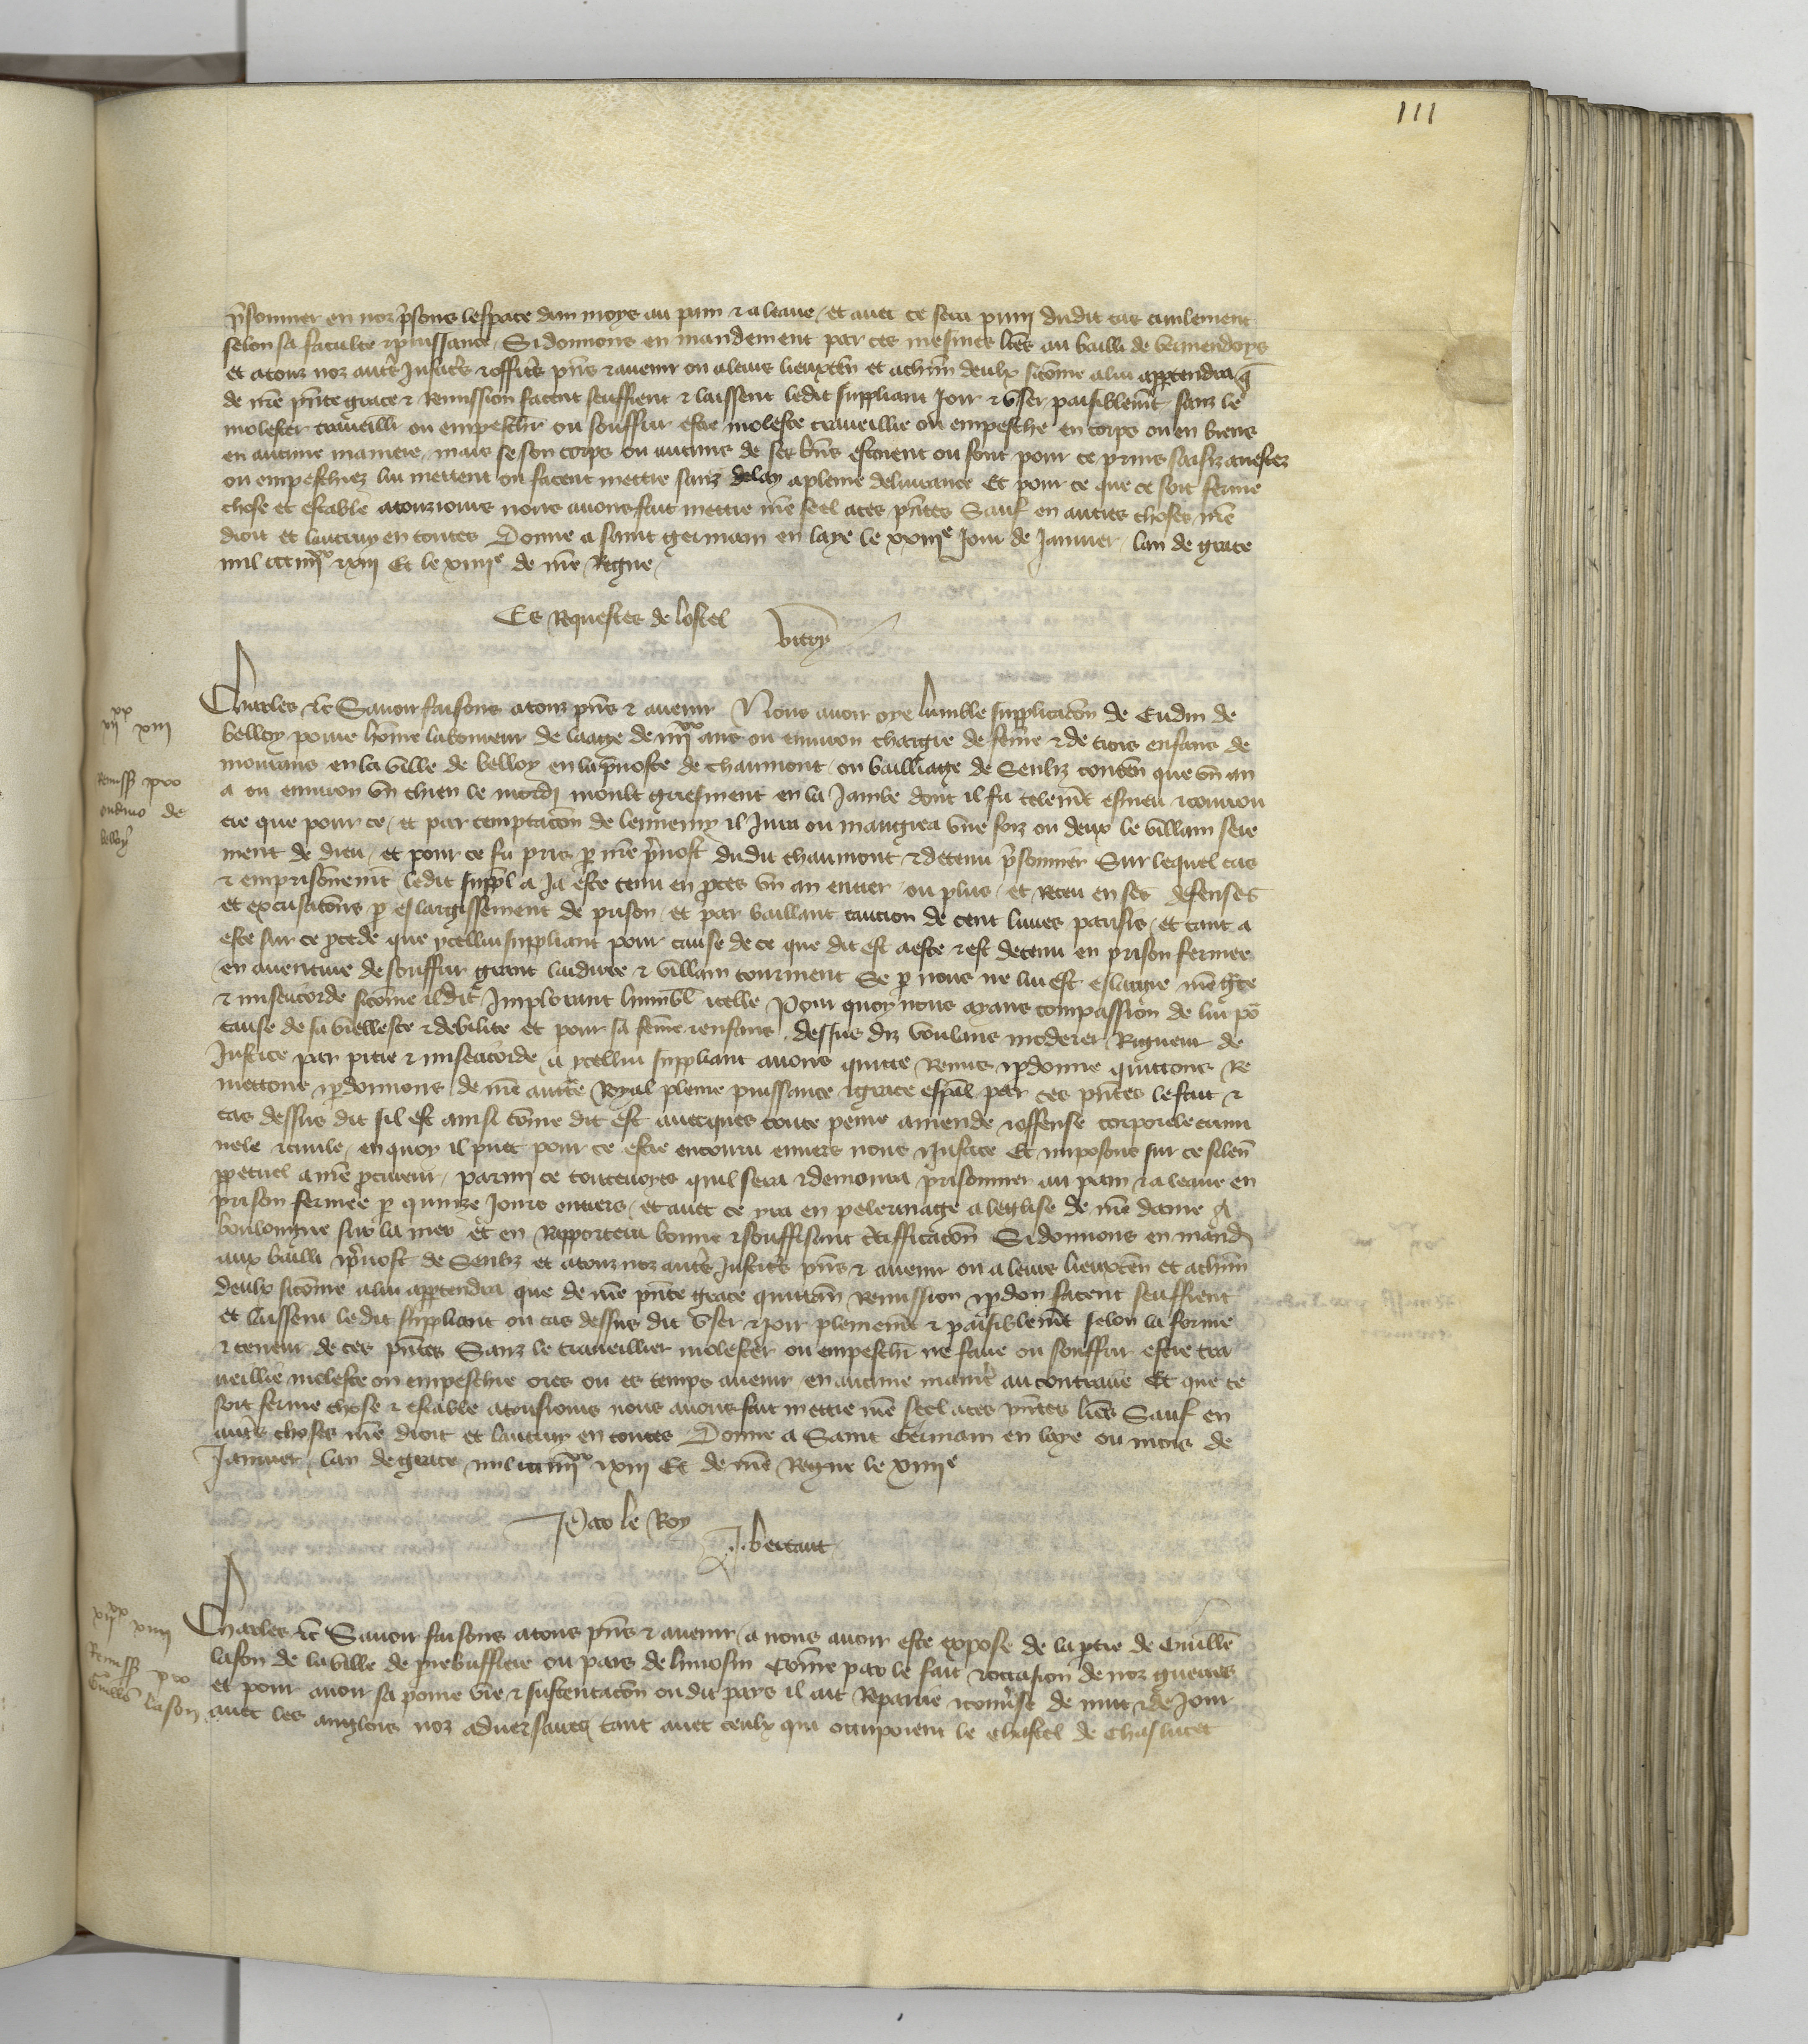 111
prisonnier en noz prisons lespace dun moys au pain & a leaue / et avec ce sera puni dudit cas civilement
selon sa faculte & puissance / Si donnons en mandement par ces mesmes lres au bailli de Vermendoys
et a touz noz autres Justiciers & officiers pñs & avenir ou a leurs lieuxten et a chun deulx sicome a lui appartendra q̃
de nre pñte grace & Remission facent seuffrent & laissent ledit suppliant Joir & user paisiblemt sanz le
molester traveillier ou empeschier ou souffrir estre moleste traveillie ou empesche en corps ou en biens
en aucune maniere / mais se son corps ou aucuns de ses biens estoient ou sont pour ce prins saisiz arrestez
ou empeschiez lui mettent ou facent mettre sanz delay a pleine delivrance Et pour ce que ce soit ferme
chose et estable a touziours nous avons fait mettre nre seel a ces pñtes Sauf en autres choses nre
droit et lautruy en toutes Donne a saint germain en laye le xxiiiie Jour de Janvier lan de grace
mil ccc iiiixx & xiii Et le xiiiie de nre Regne
Es Requestes de lostel
Vitry
Charles &c Savoir faisons a touz pñs & avenir Nous avoir oye lumble supplicacon de Eudin de
belloy povre home laboureur de laage de iiiixx ans ou environ chargie de feme & de trois enfans de
mourans en la ville de belloy en la prevoste de chaumont ou bailliage de Senliz conten que un an
a ou environ un chien le mordi moult griefment en la Jambe dont il fu telemt esmeu & courou
cie que pour ce / et par temptacon de lennemy il Jura ou maugrea une foiz ou deux le villain sere
ment de dieu / et pour ce fu pris p nre prevost dudit chaumont & detenu prisonnier Sur lequel cas
& emprisonemt ledit suppl a Ja este tenu en proces un an entier ou plus / et Receu en ses defenses
et excusacons p eslargissement de prison / et par baillant caucion de cent livres parisis / et tant a
este sur ce procede que ycellui suppliant pour cause de ce que dit est a este & est detenu en prison fermee
en aventure de souffrir grant laidure & villain tourment Se p nous ne lui est eslargie nre grace
& misericorde sicome il dit Implorant humbl icelle Pour quoy nous ayans compassion de lui po
cause de sa viellesce & debilite et pour sa feme & enfans dessus diz voulans moderer Rigueur de
Justice par pitie & misericorde a ycellui suppliant avons quitte Remis & pdonne quittons Re
mettons & pdonnons de nre auctte Royal pleine puissance & grace espal par ces pñtes le fait &
cas dessus dit sil est ainsi come dit est avecques toute peine amende & offense corporele crimi
nele & civile / en quoy il puet pour ce estre encouru envers nous & Justice Et imposons sur ce silen
ppetuel a nre procureur / parmi ce toutevoyes quil sera & demourra prisonnier au pain & a leaue en
prison fermee p quinze Jours entiers / et avec ce yra en pelerinage a leglise de nre dame A
boulongne sur la mer et en Rapportera bonne & souffisant certifficacon Si donnons en mand
aux bailli & prevost de Senliz et a touz noz autres Justiciers pñs & avenir ou a leurs lieuxten et a chun
deulx sicome a lui appartendra que de nre pñte grace quittan Remission & pdon facent seuffrent
et laissent ledit suppliant ou cas dessus dit User & Joir plenemt & paisiblemt selon la forme
& teneur de ces pñtes Sanz le traveillier molester ou empeschier ne faire ou souffrir estre tra
veillie moleste ou empeschie ores ou es temps avenir en aucune maniere au contraire Et que ce
soit ferme chose & estable a tousiours nous avons fait mettre nre seel a ces pñtes lres Sauf en
autres choses nre droit et lautruy en toutes Donne a Saint Germain en laye ou mois de
Janvier lan de grace mil ccc iiiixx & xiii Et de nre Regne le xiiiie
Par le Roy
J. bertaut
Charles &c Savoir faisons a tous pñs & avenir / a nous avoir este expose de la ptie de Guille
lason de la ville de pierebuffiere ou pais de limosin Come par le fait & occasion de noz guerres
et pour avoir sa povre vie & sustentacon ou dit pays il ait Repairie & converse de nuit & de Jour
avec les anglois noz adversaires tant avec ceulx qui occupoient le chastel de Chaslucet
viixx xiii
Remiss pro
eudino de
belloy
viixx xiiii
Remiss pro
Guillo lason